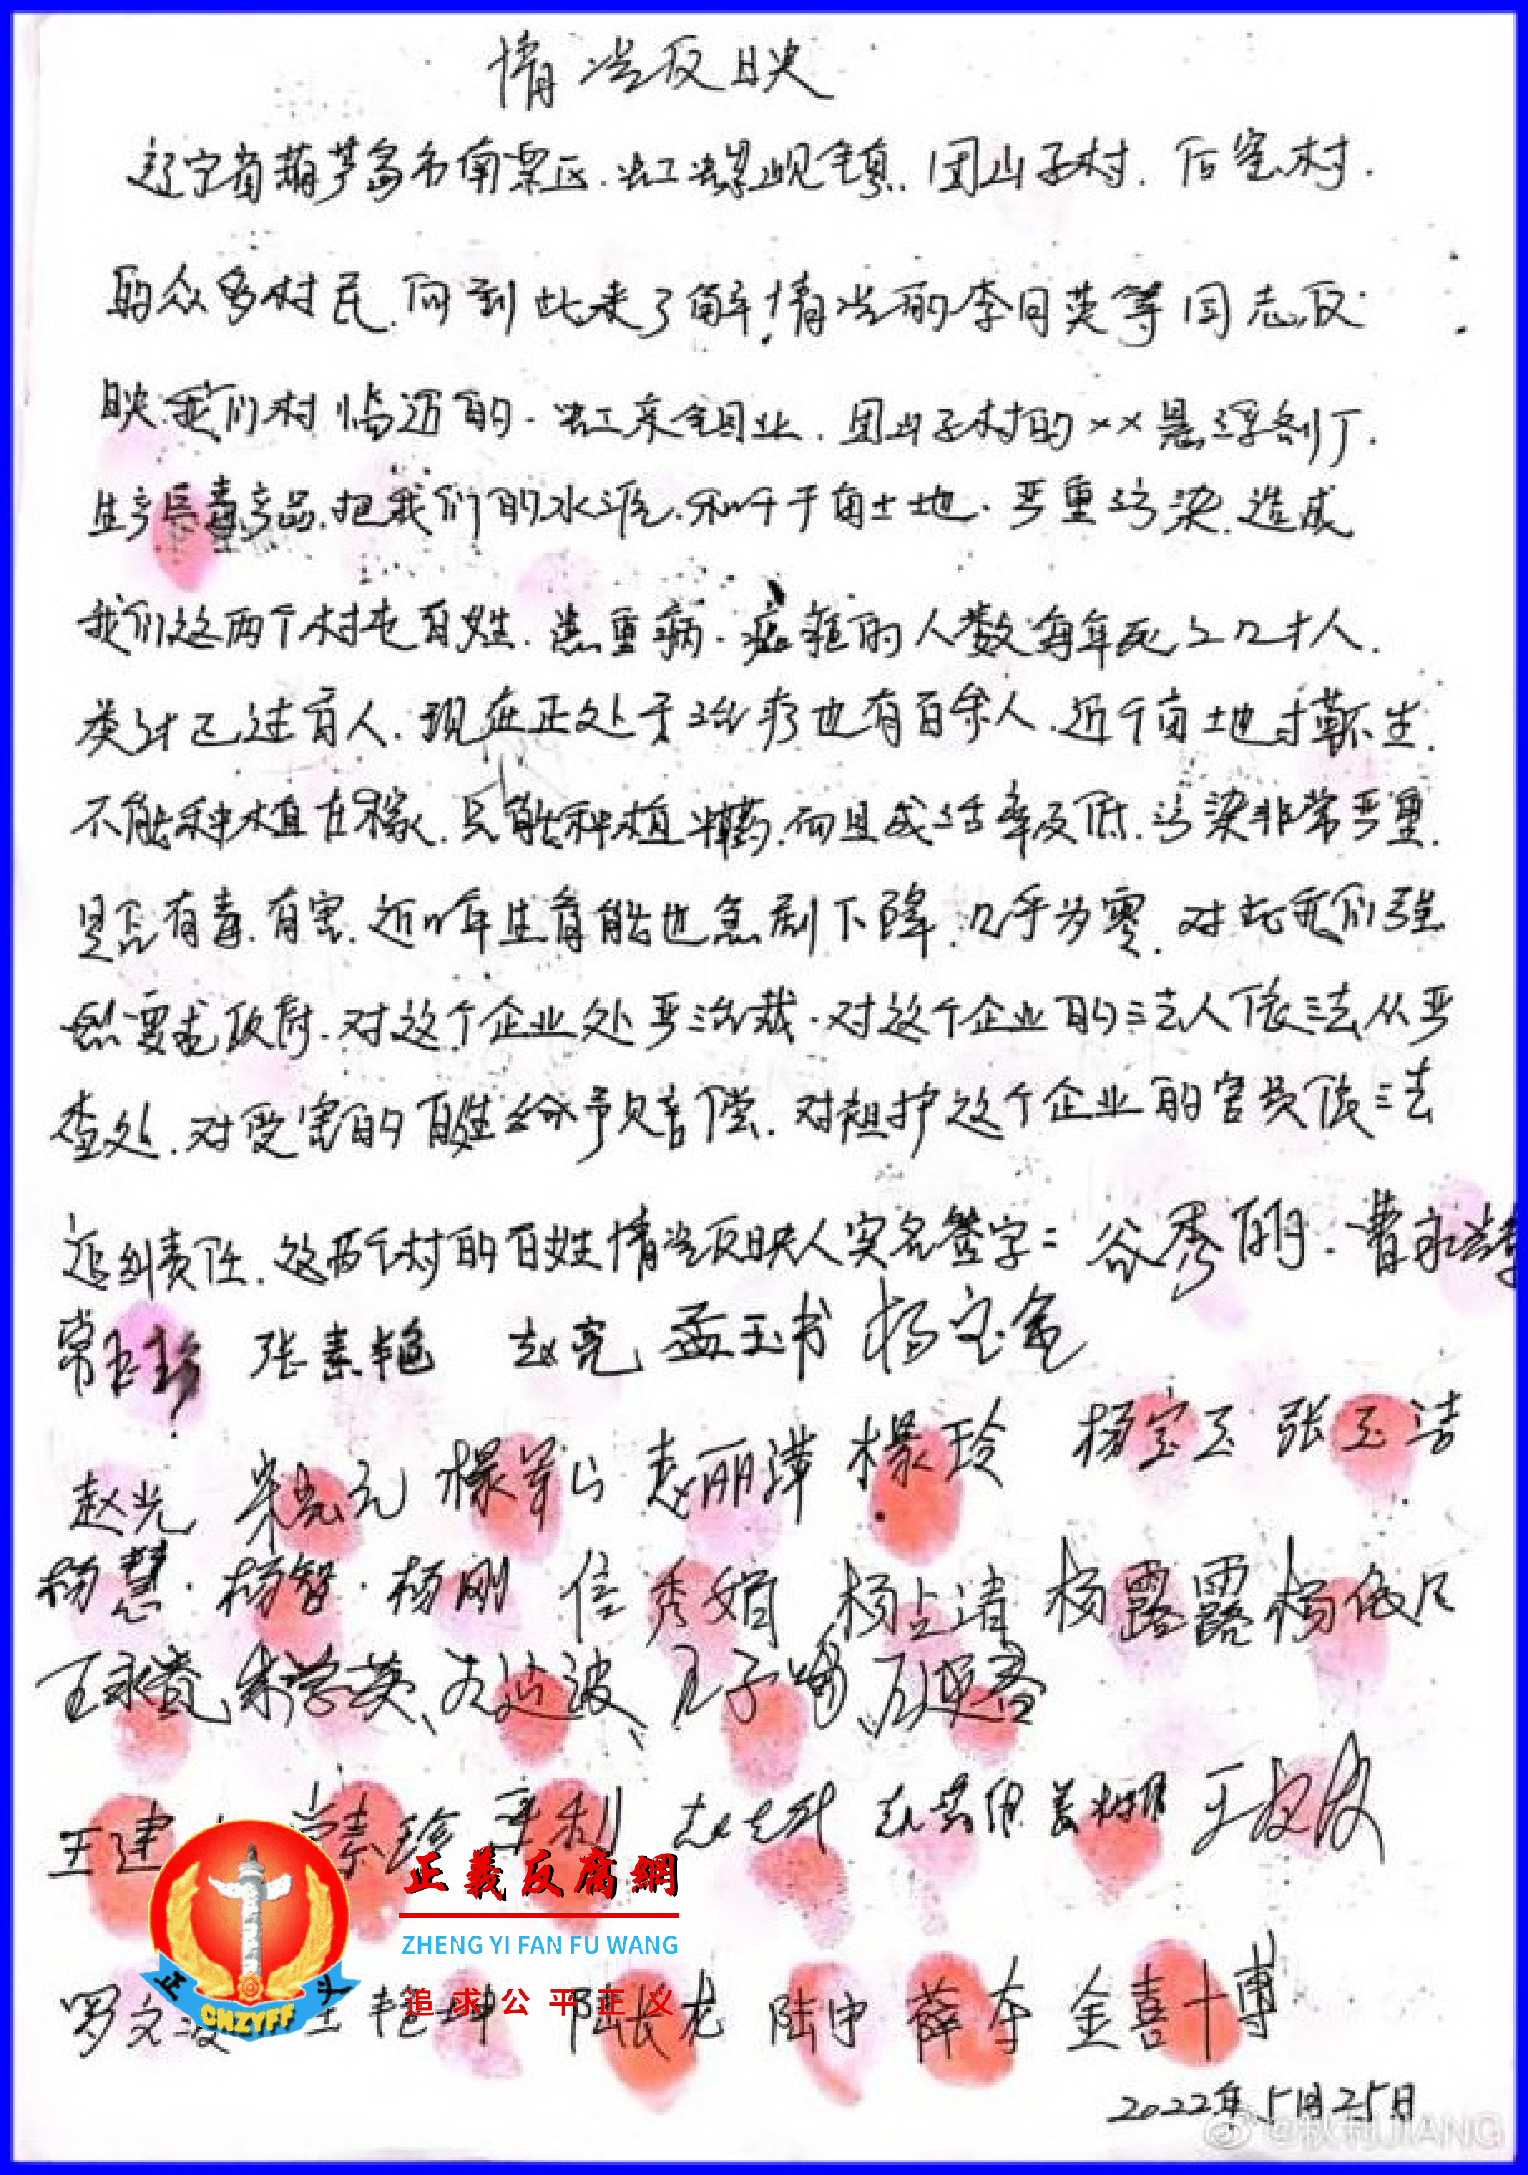 情况反映
辽宁省葫芦岛市南票区.缸窑岭镇.团山子村.后窑村.
的众多村民.向到此来了解情况的李月英等同志反
映我们村临近的.虹京钼业.团山子村的××悬浮剂厂.
生产巨毒产品.把我们的水源.和千亩土地.严重污染.造成
我们这两个村屯百姓.患重病.癌症的人数每年死亡几十人.
类计已过百人.现在正处于治疗也有百余人.近千亩土地寸草不生.
不能种植庄稼.只能种植中草药.而且成活率及低.污染非常严重.
是否有毒.有害.近几年生育能也急剧下降.几乎为零.对此我们强
烈要求政府.对这个企业处严治裁.对这个企业的法人依法从严
查处.对受害的百姓给予赔偿.对袒护这个企业的官员依法
追纠责任.这两个村的百姓情况反映人实名签字：谷秀丽.曹永
常玉珍 张素艳 赵亮 孟玉书 杨宝金
赵光 赵丽萍 玲 杨宝玉 张玉洁
杨慧.杨智.杨刚 信秀娟 杨上清 杨露露 杨依凡
王永贵、朱学英、
王建 常素珍 王
罗文波 艳坤 陆长龙 陆中 薛 金喜博
2022年5月25日
正義反腐網
ZHENG YI FAN FU WANG
追求公平正义
正
头
CNZYFF
JIANG